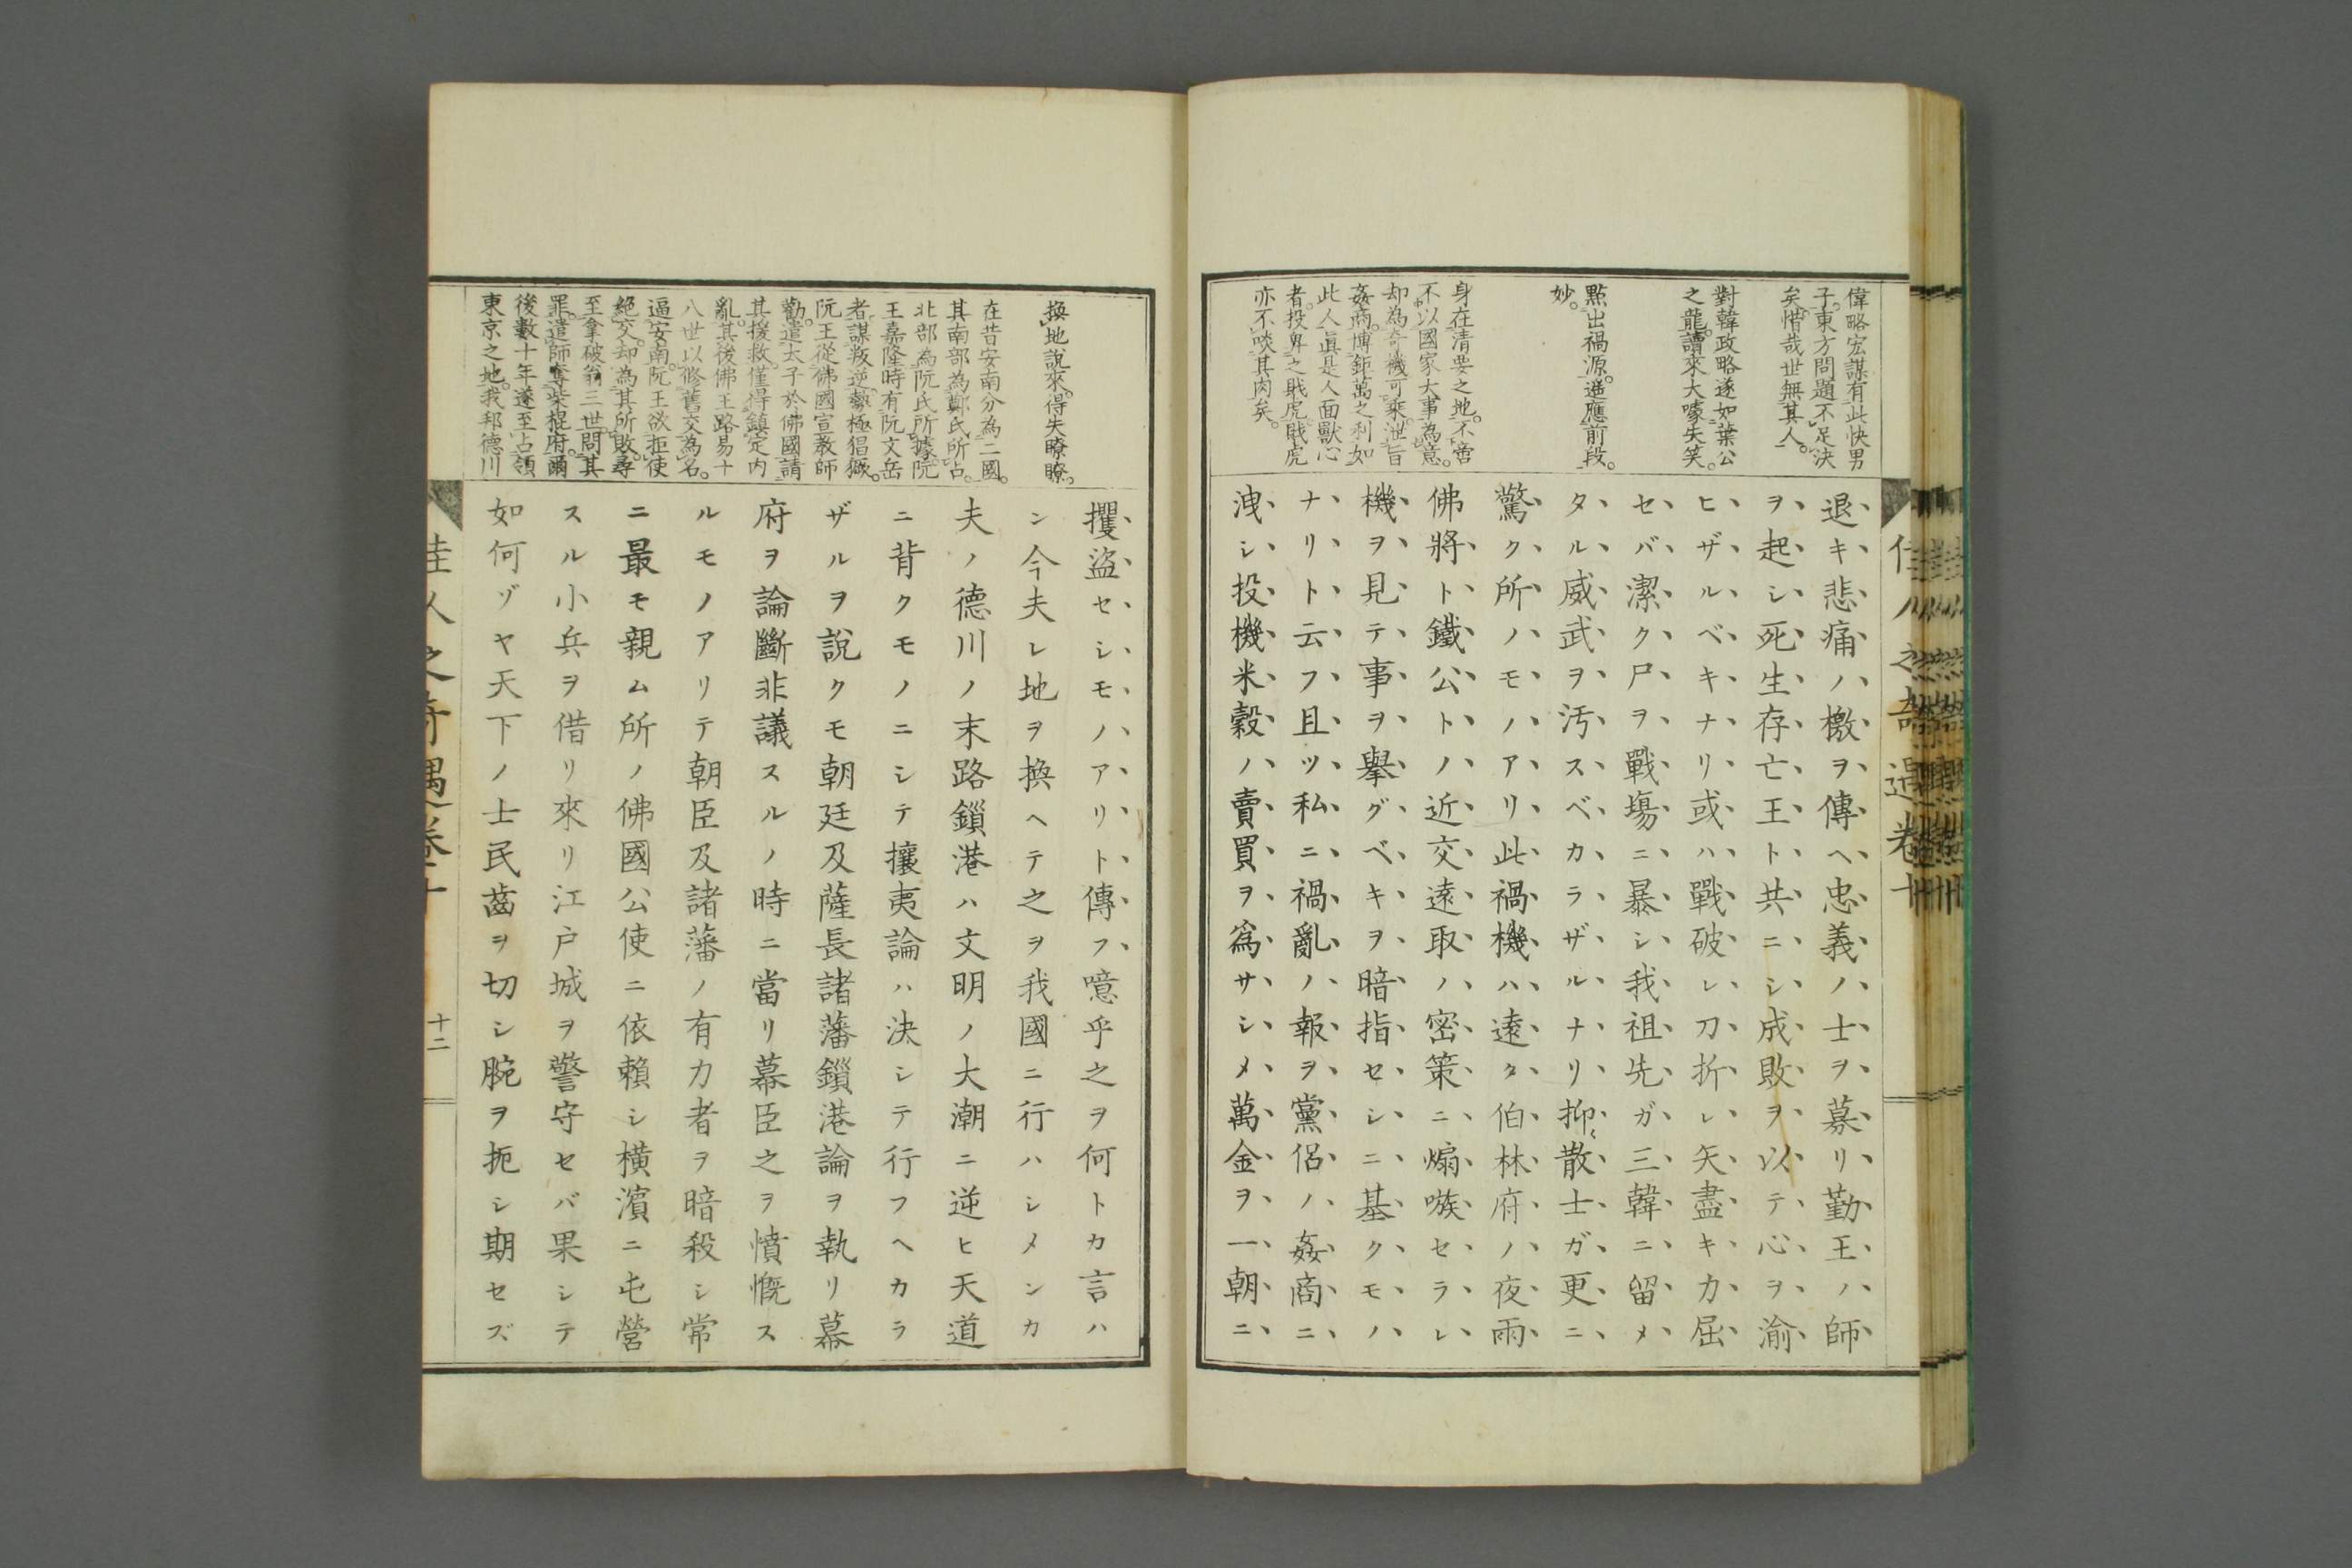 偉略宏謀有此快男
子。東方問題不足決
矣。惜哉世無其人。
對韓政略遂如葉公
之龍。讀來大嚎失笑。
點出禍源。遙應前段。
妙。
身在清要之地。不啻
不以國家大事為意。
却為奇機可乘。泄旨
姦商。博鉅萬之利如
此人眞是人面獸心
者。投卑之戝虎。戝虎
亦不啖其肉矣。
退キ悲痛ノ檄ヲ傳ヘ忠義ノ士ヲ募リ勤王ノ師
ヲ起シ死生存亡王ト共ニシ成敗ヲ以テ心ヲ渝
ヒザルベキナリ或ハ戰破レ刀折レ矢盡キ力屈
セバ潔ク尸ヲ戰塲ニ暴シ我祖先ガ三韓ニ留メ
タル威武ヲ汚スベカラザルナリ抑〻散士ガ更ニ
驚ク所ノモノアリ此禍機ハ遠ク伯林府ノ夜雨
佛將ト鐵公トノ近交遠取ノ密策ニ煽嗾セラレ
機ヲ見テ事ヲ擧グベキヲ暗指セシニ基クモノ
ナリト云フ且ツ私ニ禍亂ノ報ヲ黨侶ノ姦商ニ
洩シ投機米穀ノ賣買ヲ爲サシメ萬金ヲ一朝ニ
佳人之奇遇卷十
換地說來。得失瞭瞭。
在昔安南分為二國。
其南部為鄭氏所占。
北部為阮氏所據。阮
王嘉隆時有阮文岳
者。謀叛逆。勢極猖獗。
阮王從佛國宣教師
勸。遣太子於佛國請
其援救。僅得鎮定內
亂。其後佛王路易十
八世以修舊交為名。
逼安南。阮王欲拒使
絕交。却為其所敗。尋
至拿破翁三世。問其
罪。遣師奪柴棍府。爾
後數十年遂至占領
東京之地。我邦德川
攫盜セシモノアリト傳フ噫乎之ヲ何トカ言ハ
ン今夫レ地ヲ換ヘテ之ヲ我國ニ行ハシメンカ
夫ノ德川ノ末路鎖港ハ文明ノ大潮ニ逆ヒ天道
ニ背クモノニシテ攘夷論ハ決シテ行フヘカラ
ザルヲ說クモ朝廷及薩長諸藩鎖港論ヲ執リ幕
府ヲ論斷非議スルノ時ニ當リ幕臣之ヲ憤慨ス
ルモノアリテ朝臣及諸藩ノ有力者ヲ暗殺シ常
ニ最モ親ム所ノ佛國公使ニ依賴シ橫濱ニ屯營
スル小兵ヲ借リ來リ江戶城ヲ警守セバ果シテ
如何ゾヤ天下ノ士民齒ヲ切シ腕ヲ扼シ期セズ
佳人之奇遇卷十
十二